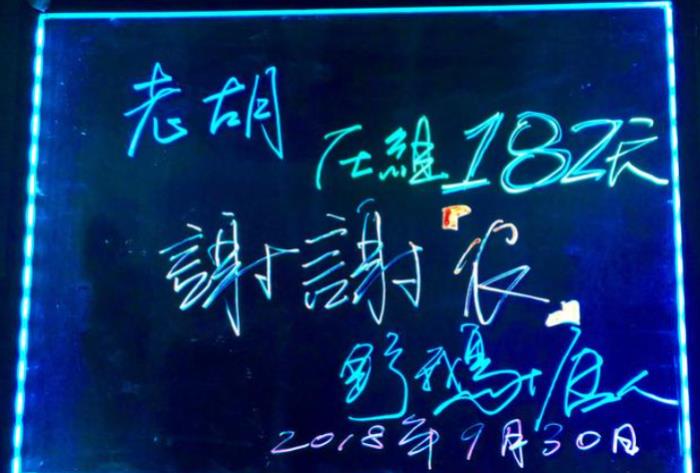 老胡
在組182天
謝謝「农」
野鵝塘人
2018年9月30日